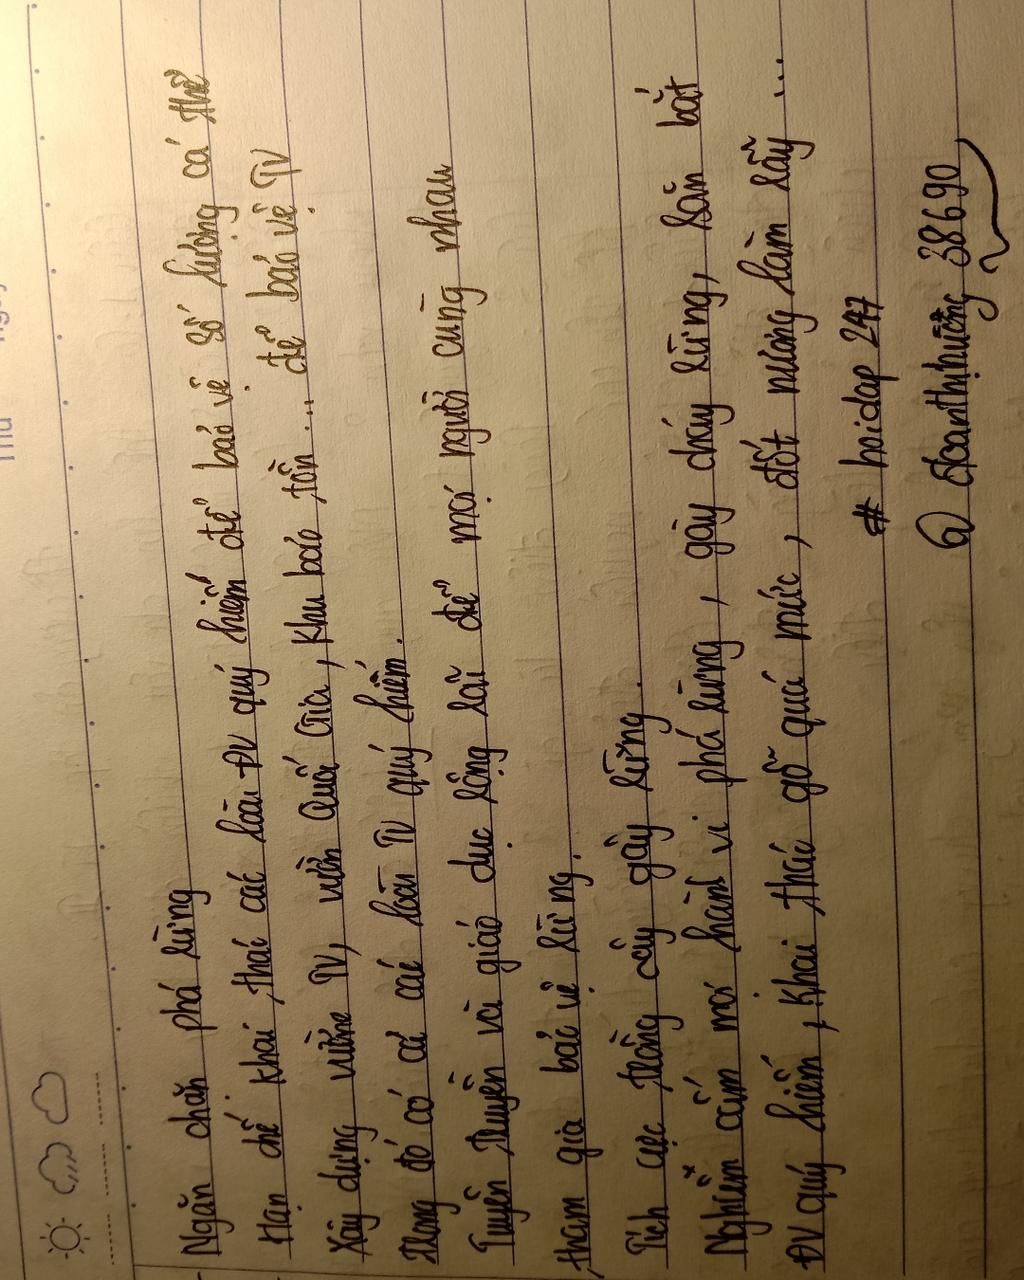 Thứ
Ngăn chặn phá rừng
Hạn chế khai thác các loài ĐV quý hiếm để bảo vệ số lượng cá thể
Xây dựng vườn TV, vườn Quốc Gia, khu bảo tồn ... để bảo vệ TV
trong đó có cả các loài TV quý hiếm.
Tuyên truyền và giáo dục rộng rãi để mọi người cùng nhau
tham gia bảo vệ rừng.
Tích cực trồng cây gây rừng.
Nghiêm cấm mọi hành vi phá rừng, gây cháy rừng, săn bắt
ĐV quý hiếm, khai thác gỗ quá mức, đốt nương làm rẫy ...
# hoidap 247
@ doanthihuong 38690